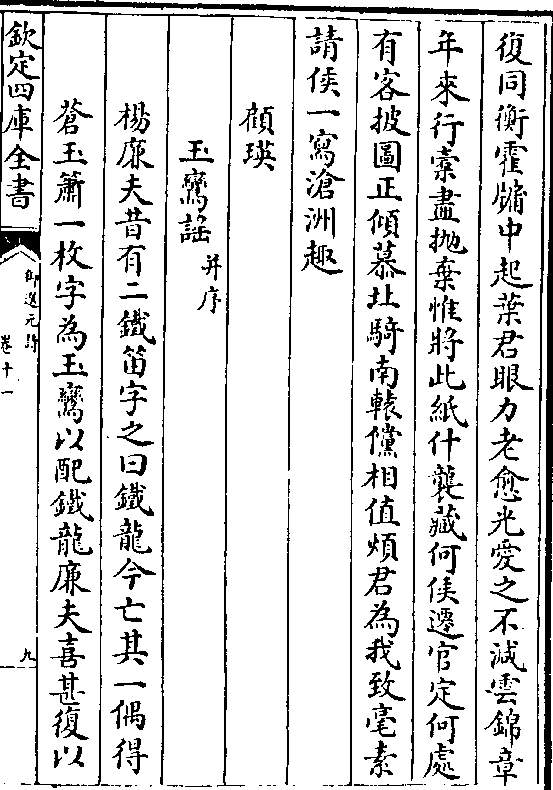 復同衡霍牖中起葉君眼力老愈光愛之不減雲錦章
年來行橐盡抛棄惟將此紙什襲藏何侯遷官定何處
有客披圖正傾慕北騎南轅儻相值煩君為我致毫素
請侯一寫滄洲趣
顧瑛
玉鸞謡并序
楊廉夫昔有二鐵笛字之曰鐵龍今亡其一偶得
蒼玉簫一枚字為玉鸞以配鐵龍廉夫喜甚復以
欽定四庫全書
御選元詩
卷十一
九